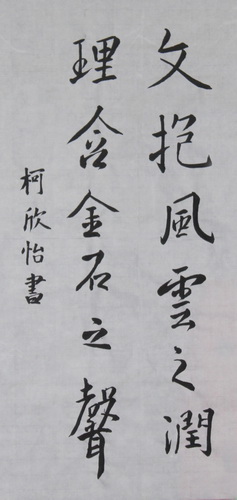 文抱風雲之潤
理含金石之聲
柯欣怡書